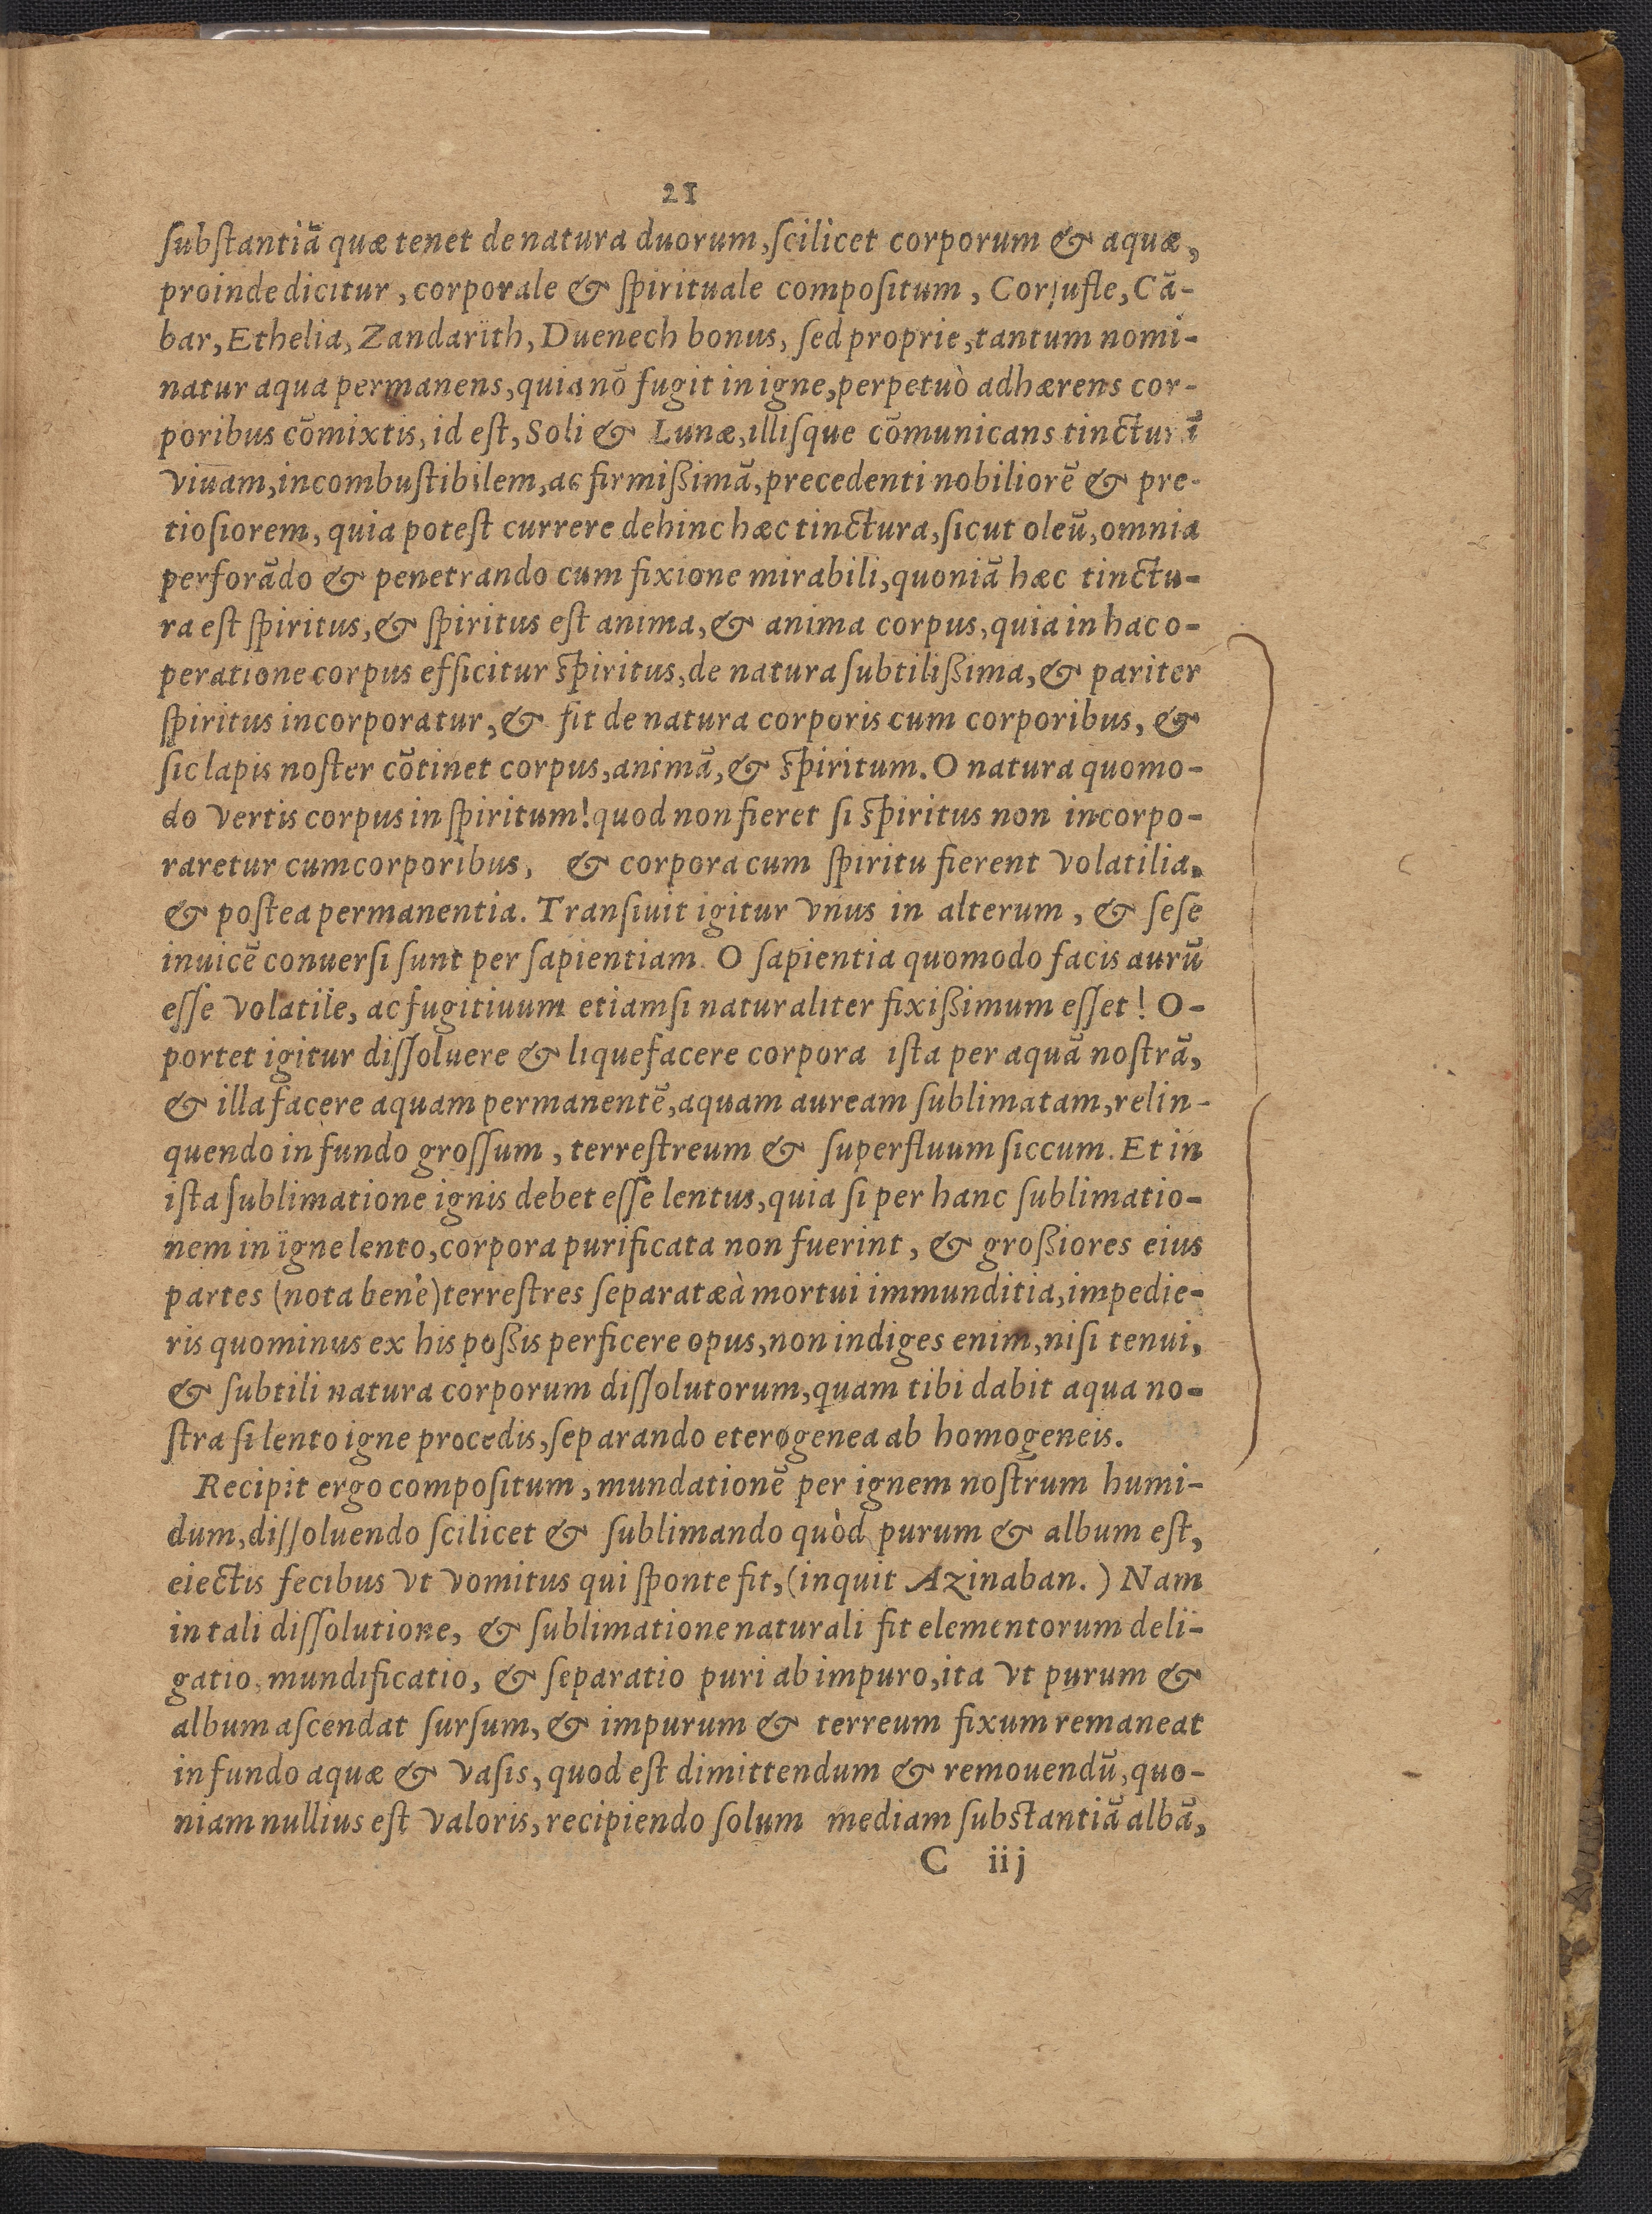 21
ſubſtantiã quæ tenet de natura duorum, ſcilicet corporum & aquæ,
proinde dicitur, corporale & ſpirituale compoſitum, Corſufle, Cã-
bar, Ethelia, Zandarith, Duenech bonus, ſed proprie, tantum nomi-
natur aqua permanens, quia nõ fugit in igne, perpetuò adhærens cor-
poribus cõmixtis, id eſt, Soli & Lunæ, illiſque cõmunicans tincturã
viuam, incombuſtibilem, ac firmißimã, precedenti nobiliorẽ & pre-
tioſiorem, quia poteſt currere dehinc hæc tinctura, ſicut oleũ, omnia
perforãdo & penetrando cum fixione mirabili, quoniã hæc tinctu-
ra eſt ſpiritus, & ſpiritus eſt anima, & anima corpus, quia in hac o-
peratione corpus efficitur ſpiritus, de natura ſubtilißima, & pariter
ſpiritus incorporatur, & fit de natura corporis cum corporibus, &
ſic lapis noſter cõtinet corpus, animã, & ſpiritum. O natura quomo-
do vertis corpus in ſpiritum! quod non fieret ſi ſpiritus non incorpo-
raretur cum corporibus, & corpora cum ſpiritu fierent volatilia,
& poſtea permanentia. Tranſiuit igitur vnus in alterum, & ſeſe
inuicẽ conuerſi ſunt per ſapientiam. O ſapientia quomodo facis aurũ
eſſe volatile, ac fugitiuum etiamſi naturaliter fixißimum eſſet! O-
portet igitur diſſoluere & liquefacere corpora iſta per aquã noſtrã,
& illa facere aquam permanentẽ, aquam auream ſublimatam, relin-
quendo in fundo groſſum, terreſtreum & ſuperfluum ſiccum. Et in
iſta ſublimatione ignis debet eſſe lentus, quia ſi per hanc ſublimatio-
nem in igne lento, corpora purificata non fuerint, & großiores eius
partes (nota benè) terreſtres ſeparatæ à mortui immunditia, impedie-
ris quominus ex his poßis perficere opus, non indiges enim, niſi tenui,
& ſubtili natura corporum diſſolutorum, quam tibi dabit aqua no-
ſtra ſi lento igne procedis, ſeparando eterogenea ab homogeneis.
Recipit ergo compoſitum, mundationẽ per ignem noſtrum humi-
dum, diſſoluendo ſcilicet & ſublimando quòd purum & album eſt,
eiectis fecibus vt vomitus qui ſponte fit, (inquit Azinaban.) Nam
in tali diſſolutione, & ſublimatione naturali fit elementorum deli-
gatio, mundificatio, & ſeparatio puri ab impuro, ita vt purum &
album aſcendat ſurſum, & impurum & terreum fixum remaneat
in fundo aquæ & vaſis, quod eſt dimittendum & remouendũ, quo-
niam nullius eſt valoris, recipiendo ſolum mediam ſubſtantiã albã,
C iij